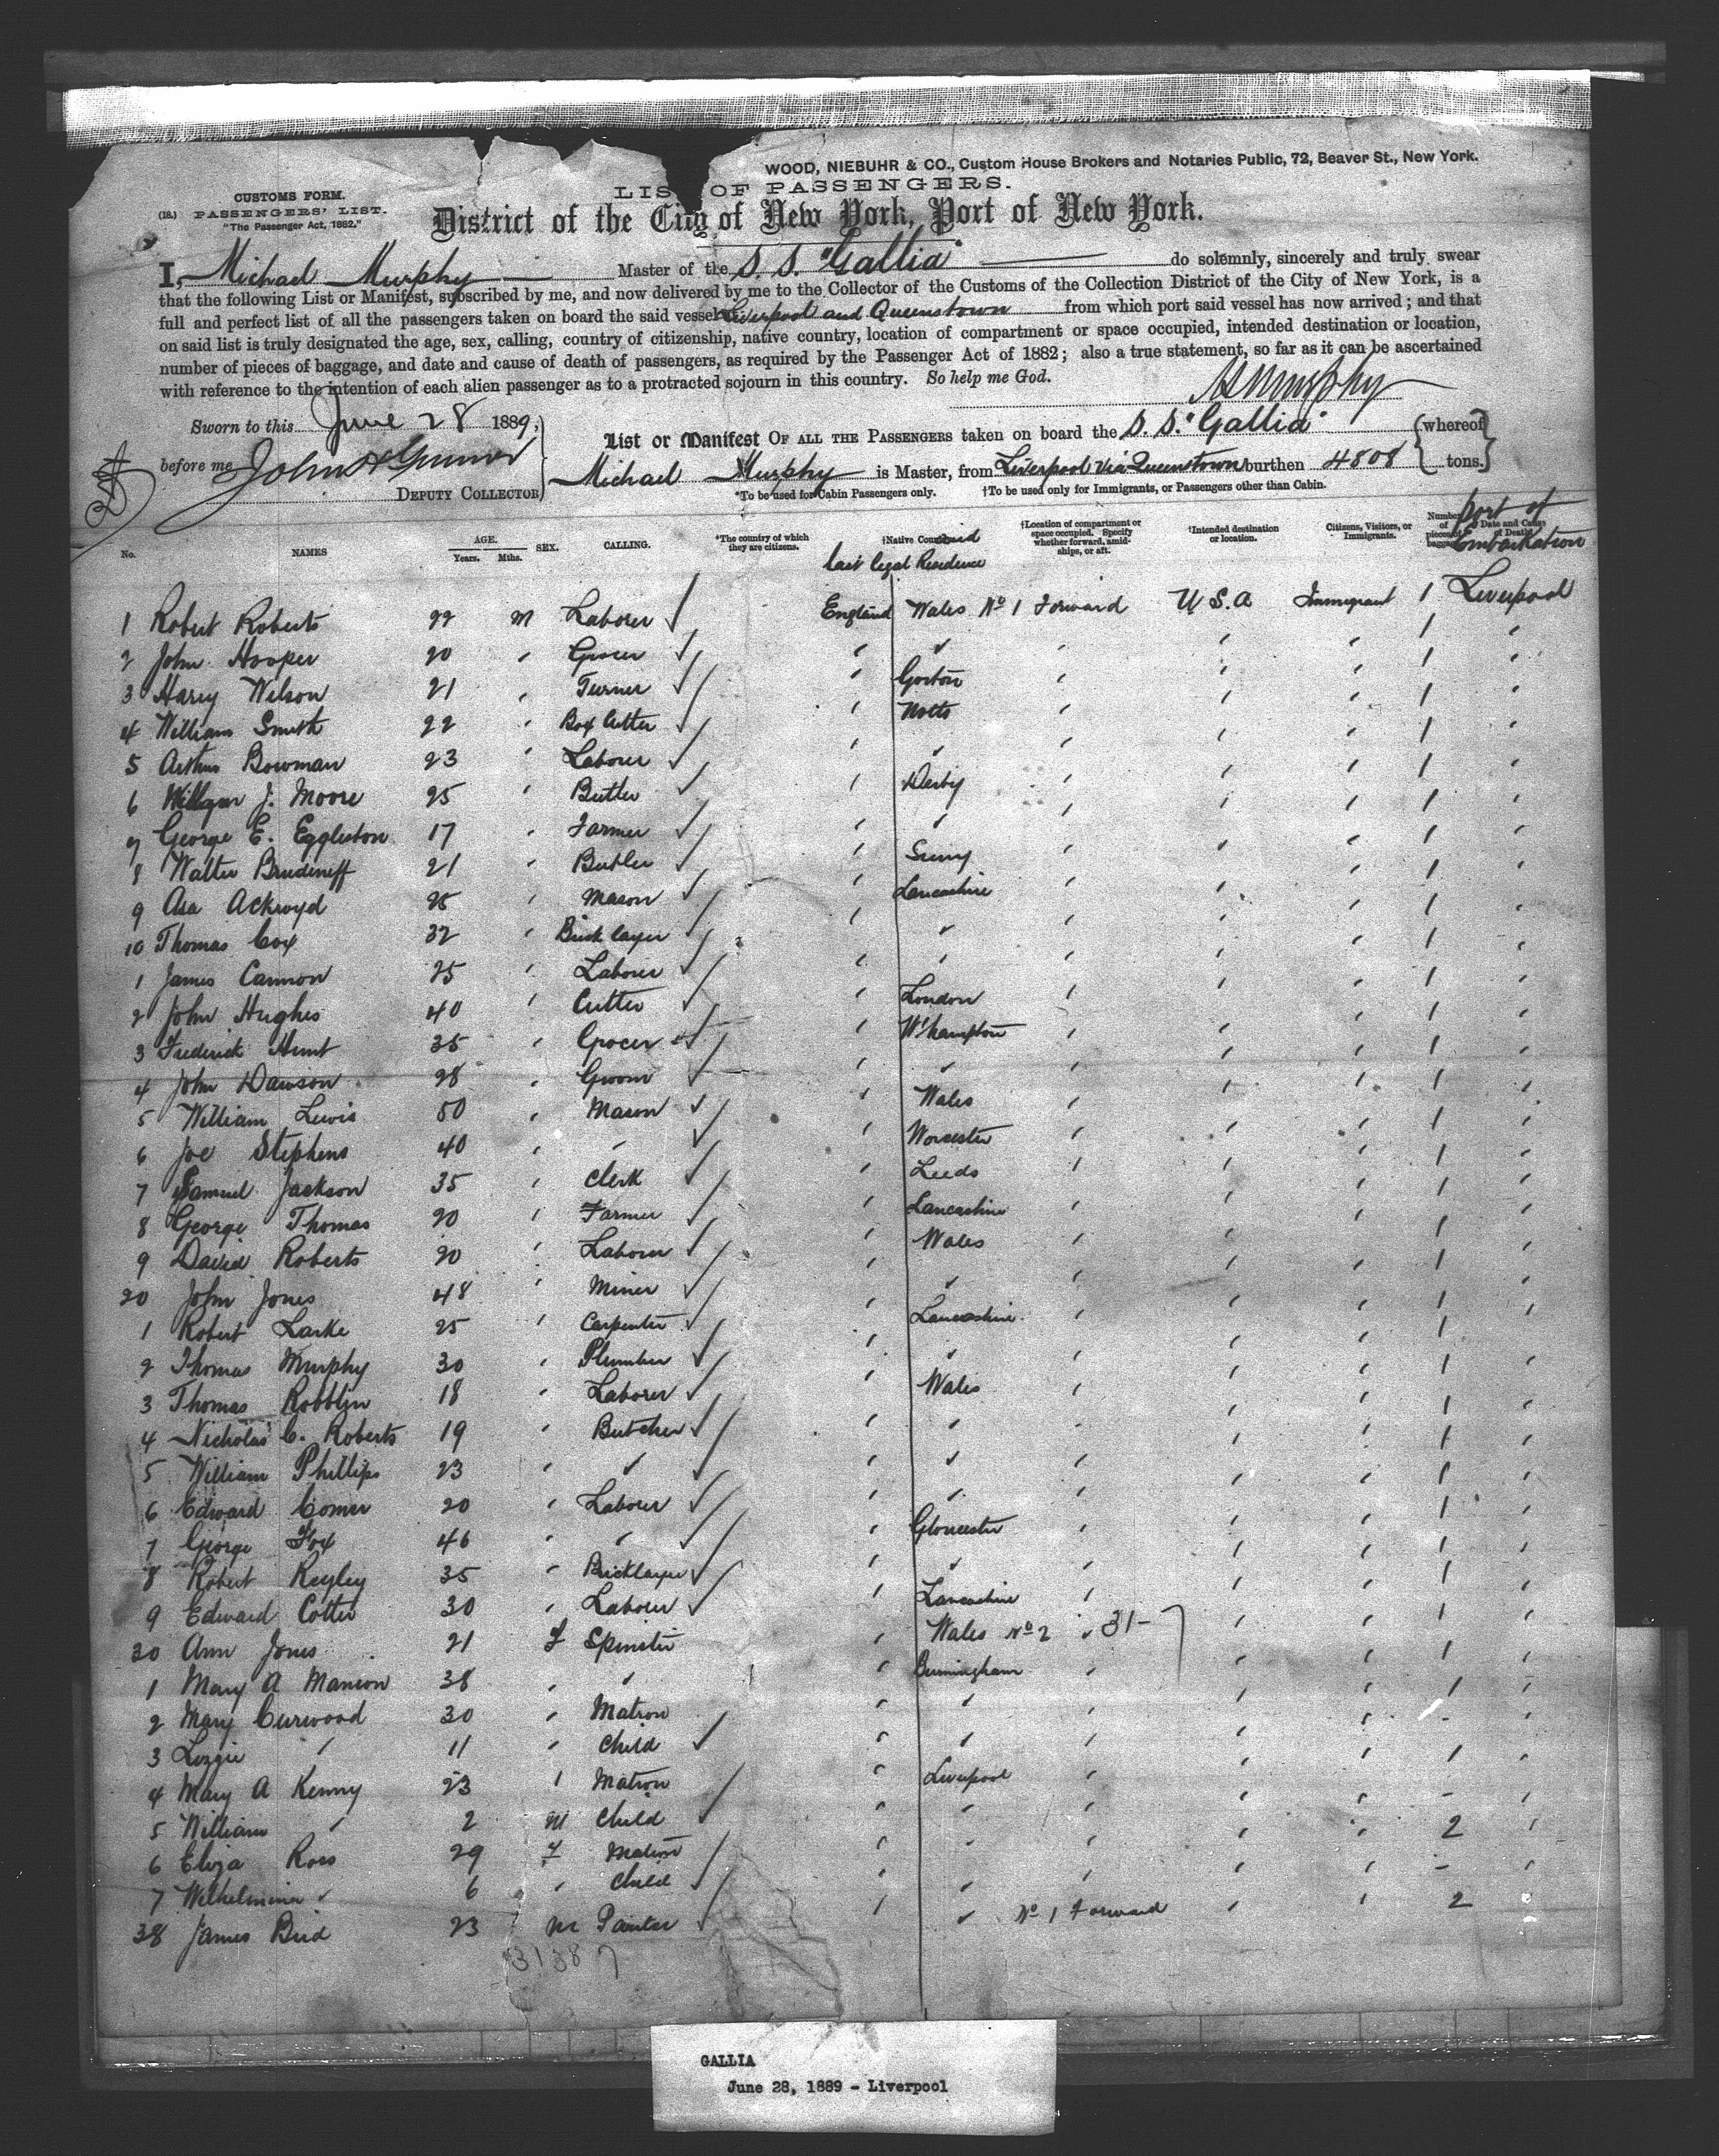 WOOD, NIEBUHR & CO., Custom House Brokers and Notaries Public, 72, Beaver St., New York.
CUSTOMS FORM.
(18.) PASSENGERS' LIST.
"The Passenger Act, 1882."
LIST OF PASSENGERS.
District of the City of New York, Port of New York.
I, Michael Murphy Master of the S. S. "Gallia" do solemnly, sincerely and truly swear
that the following List or Manifest, subscribed by me, and now delivered by me to the Collector of the Customs of the Collection District of the City of New York, is a
full and perfect list of all the passengers taken on board the said vessel Liverpool and Queenstown from which port said vessel has now arrived; and that
on said list is truly designated the age, sex, calling, country of citizenship, native country, location of compartment or space occupied, intended destination or location,
number of pieces of baggage, and date and cause of death of passengers, as required by the Passenger Act of 1882; also a true statement, so far as it can be ascertained
with reference to the intention of each alien passenger as to a protracted sojourn in this country. So help me God.
Murphy
Sworn to this June 28 1889,
before me John
DEPUTY COLLECTOR
List or Manifest OF ALL THE PASSENGERS taken on board the S. S. "Gallia" whereof
Michael Murphy is Master, from Liverpool via Queenstown burthen 4808 tons.
*To be used for Cabin Passengers only. †To be used only for Immigrants, or Passengers other than Cabin.
No. NAMES AGE. Years. Mths. SEX. CALLING. *The country of which they are citizens. †Native Country and last legal Residence †Location of compartment or space occupied. Specify whether forward, amidships, or aft. †Intended destination or location. Citizens, Visitors, or Immigrants. Number of pieces of baggage Date and Cause of Death Port of Embarkation
1 Robert Roberts 22 M Laborer ✓ England Wales No 1 Forward U S. A Immigrant 1 Liverpool
2 John Hooper 20 " Grocer ✓ " " " " " 1 "
3 Harry Wilson 21 " Turner ✓ " Gorton " " " 1 "
4 William Smith 22 " Box Cutter ✓ " Notts " " " 1 "
5 Arthur Bowman 23 " Laborer ✓ " " " " " 1 "
6 William J. Moore 25 " Butler ✓ " Derby " " " 1 "
7 George E. Eggleston 17 " Farmer ✓ " " " " " 1 "
8 Walter 21 " Butler ✓ " Surrey " " " 1 "
9 Asa Ackroyd 25 " Mason ✓ " Lancashire " " " 1 "
10 Thomas Cox 32 " Bricklayer ✓ " " " " " 1 "
1 James Cannon 25 " Laborer ✓ " " " " " 1 "
2 John Hughes 40 " Cutter ✓ " London " " " 1 "
3 Frederick Hunt 35 " Grocer ✓ " W'hampton " " " 1 "
4 John Dawson 28 " Groom ✓ " " " " " 1 "
5 William Lewis 50 " Mason ✓ " Wales " " " 1 "
6 Joe Stephens 40 " " ✓ " Worcester " " " 1 "
7 Samuel Jackson 35 " Clerk ✓ " Leeds " " " 1 "
8 George Thomas 20 " Farmer ✓ " Lancashire " " " 1 "
9 David Roberts 20 " Laborer ✓ " Wales " " " 1 "
20 John Jones 48 " Miner ✓ " " " " " 1 "
1 Robert Larke 25 " Carpenter ✓ " Lancashire " " " 1 "
2 Thomas Murphy 30 " Plumber ✓ " " " " " 1 "
3 Thomas Robblin 18 " Laborer ✓ " Wales " " " 1 "
4 Nicholas C. Roberts 19 " Butcher ✓ " " " " " 1 "
5 William Phillips 23 " " ✓ " " " " " 1 "
6 Edward Comer 20 " Laborer ✓ " " " " " 1 "
7 George Fox 46 " " ✓ " Gloucester " " " 1 "
8 Robert Regley 35 " Bricklayer ✓ " " " " " 1 "
9 Edward Cotter 30 " Laborer ✓ " Lancashire " " " 1 "
30 Ann Jones 21 F Spinster " Wales No 2 " 31- " " 1 "
1 Mary A Manion 38 " " " Birmingham " " " 1 "
2 Mary Curwood 30 " Matron " " " " " 1 "
3 Lizzie " 11 " Child ✓ " " " " " - "
4 Mary A Kenny 23 " Matron " Liverpool " " " 1 "
5 William " 2 M Child ✓ " " " " " - "
6 Eliza Ross 29 F Matron " " " " " 2 "
7 Wilhelmina " 6 " Child ✓ " " " " " - "
38 James Bird 23 M Painter ✓ " " No 1 Forward " " 2
31387
GALLIA
June 28, 1889 - Liverpool